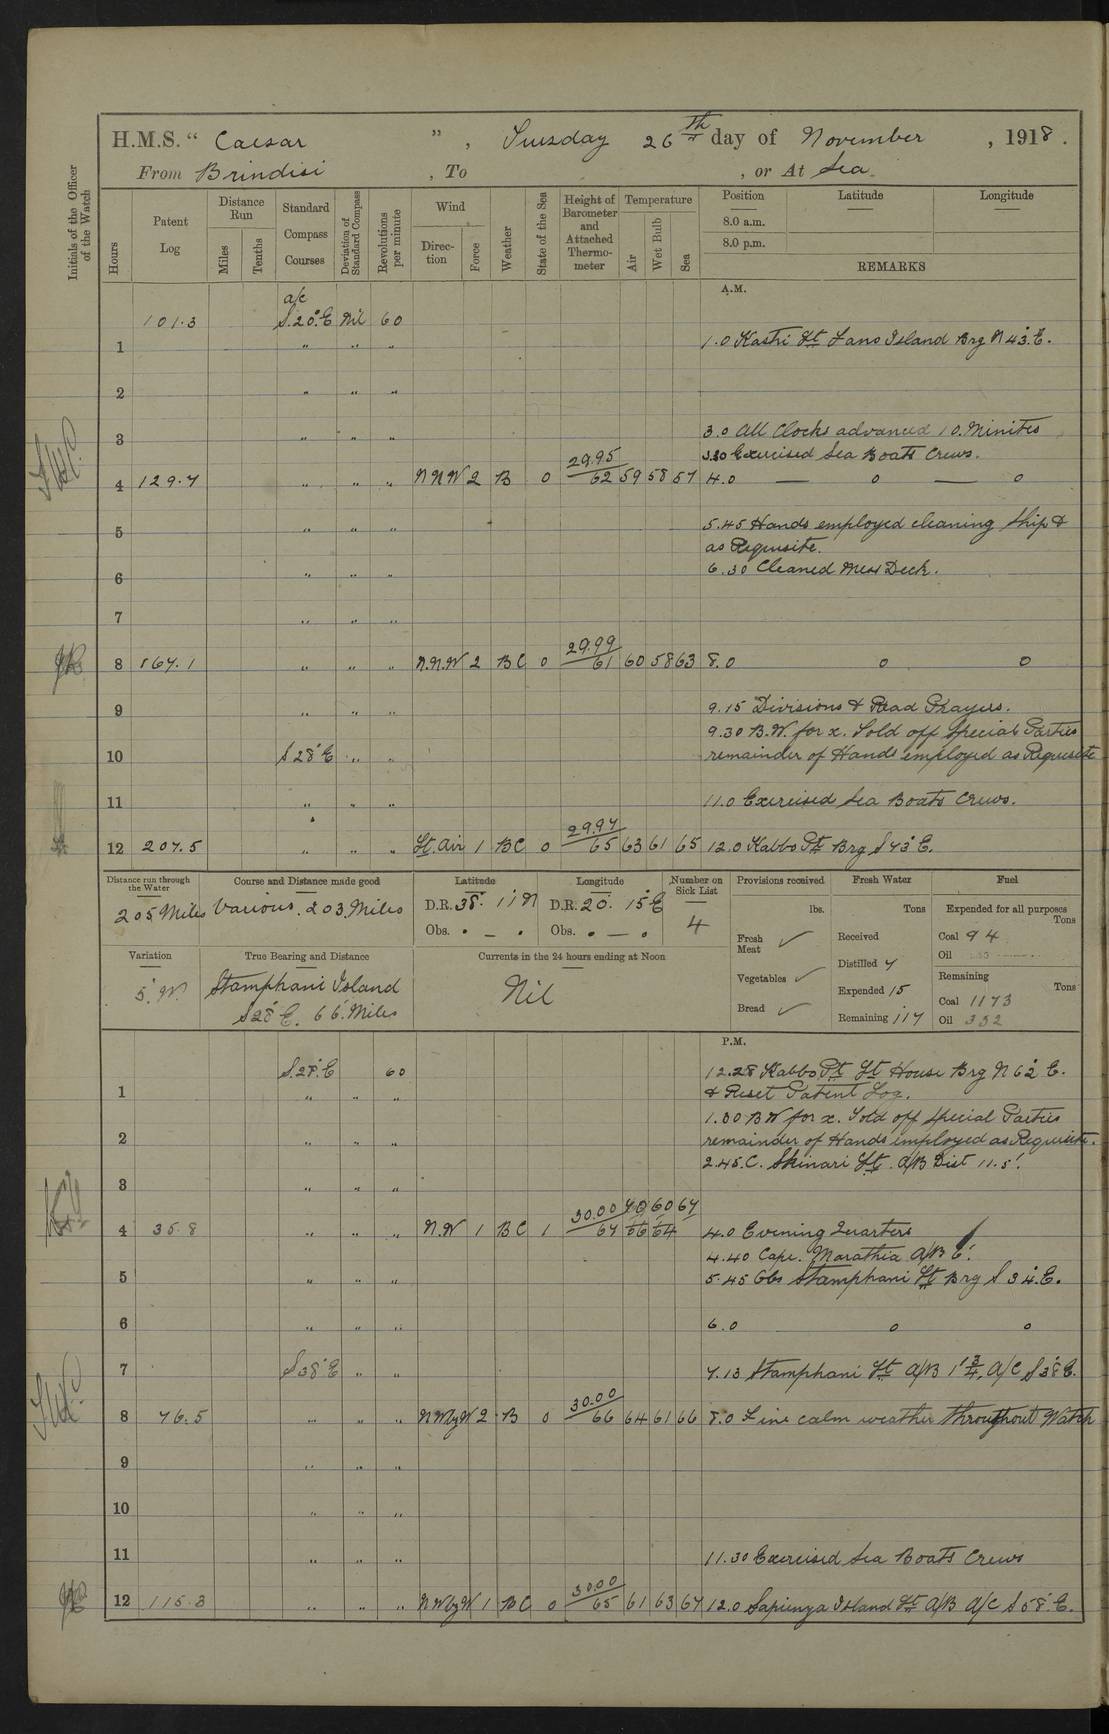 H.M.S. “ Caesar ”, Tuesday 26th day of November, 1918.
From Brindisi, To , or At Sea.
Initials of the Officer of the Watch
Hours
Patent Log
Distance Run
Miles
Tenths
Standard Compass Courses
Deviation of Standard Compass
Revolutions per minute
Wind
Direc-tion
Force
Weather
State of the Sea
Height of Barometer and Attached Thermo-meter
Temperature
Air
Wet Bulb
Sea
Position
Latitude
Longitude
8.0 a.m.
8.0 p.m.
REMARKS
A.M.
a/c
101.3 S.20°.E Nil 60
1 " " " 1.0 Kastri Lt Fano Island Brg N 43°.E.
2 " " "
3 " " " 3.0 All Clocks advanced 10. Minites
3.30 Exercised Sea Boats Crews.
4 129.7 " " " N N W 2 B 0 29.95/62 59 58 57 4.0 — o — o
5 " " " 5.45 Hands employed cleaning Ship &
as Requisite.
6 " " " 6.30 Cleaned Mess Deck.
7 " " "
8 167.1 " " " N.N.W 2 BC 0 29.99/61 60 58 63 8.0 o o
9 " " " 9.15 Divisions & Read Prayers.
9.30 B.W. for x. Told off Special Parties
10 S 28° E " " remainder of Hands employed as Requisite
11 " " " 11.0 Exercised Sea Boats Crews.
12 207.5 " " " Lt. Air 1 BC 0 29.97/65 63 61 65 12.0 Kabbo Pt Brg S 73° E.
Distance run through the Water
205 Miles
Course and Distance made good
Various. 203. Miles
Latitude
D.R. 38°. 11 N
Obs. . – .
Longitude
D.R. 20°. 15 E
Obs. . – .
Number on Sick List
4
Provisions received
lbs.
Fresh Meat ✓
Vegetables ✓
Bread ✓
Fresh Water
Tons
Received
Distilled 7
Expended 15
Remaining 117
Fuel
Expended for all purposes
Tons
Coal 94
Oil
Remaining
Tons
Coal 1173
Oil 332
Variation
5°. W.
True Bearing and Distance
Stamphani Island
S 28° E. 66'. Miles
Currents in the 24 hours ending at Noon
Nil
P.M.
S.28°.E 60 12.28 Kabbo Pt Lt House Brg N 62° E.
1 " " " & Reset Patent Log.
1.30 B W for x. Told off Special Parties
2 " " " remainder of Hands employed as Requisite.
2.45. C. Skinari Lt. A/B Dist 11.5'.
3 " " "
4 35.8 " " " N.W 1 BC 1 30.00/67 70 66 60 64 67 4.0 Evening Quarters
4.40 Cape. Marathia A/B 6'.
5 " " " 5.45 Obs Stamphani Lt Brg S 34°.E.
6 " " " 6.0 o o
7 S 38° E " " 7.13 Stamphani Lt A/B 1' 3/4, A/C S 38° E.
8 76.5 " " " NWbyW 2 B 0 30.00/66 64 61 66 8.0 Fine calm weather throughout Watch
9 " " "
10 " " "
11 " " " 11.30 Exercised Sea Boats Crews
12 115.3 " " " NWbyW 1 BC 0 30.00/65 61 63 67 12.0 Sapienza Island Lt A/B A/C S 58°. E.